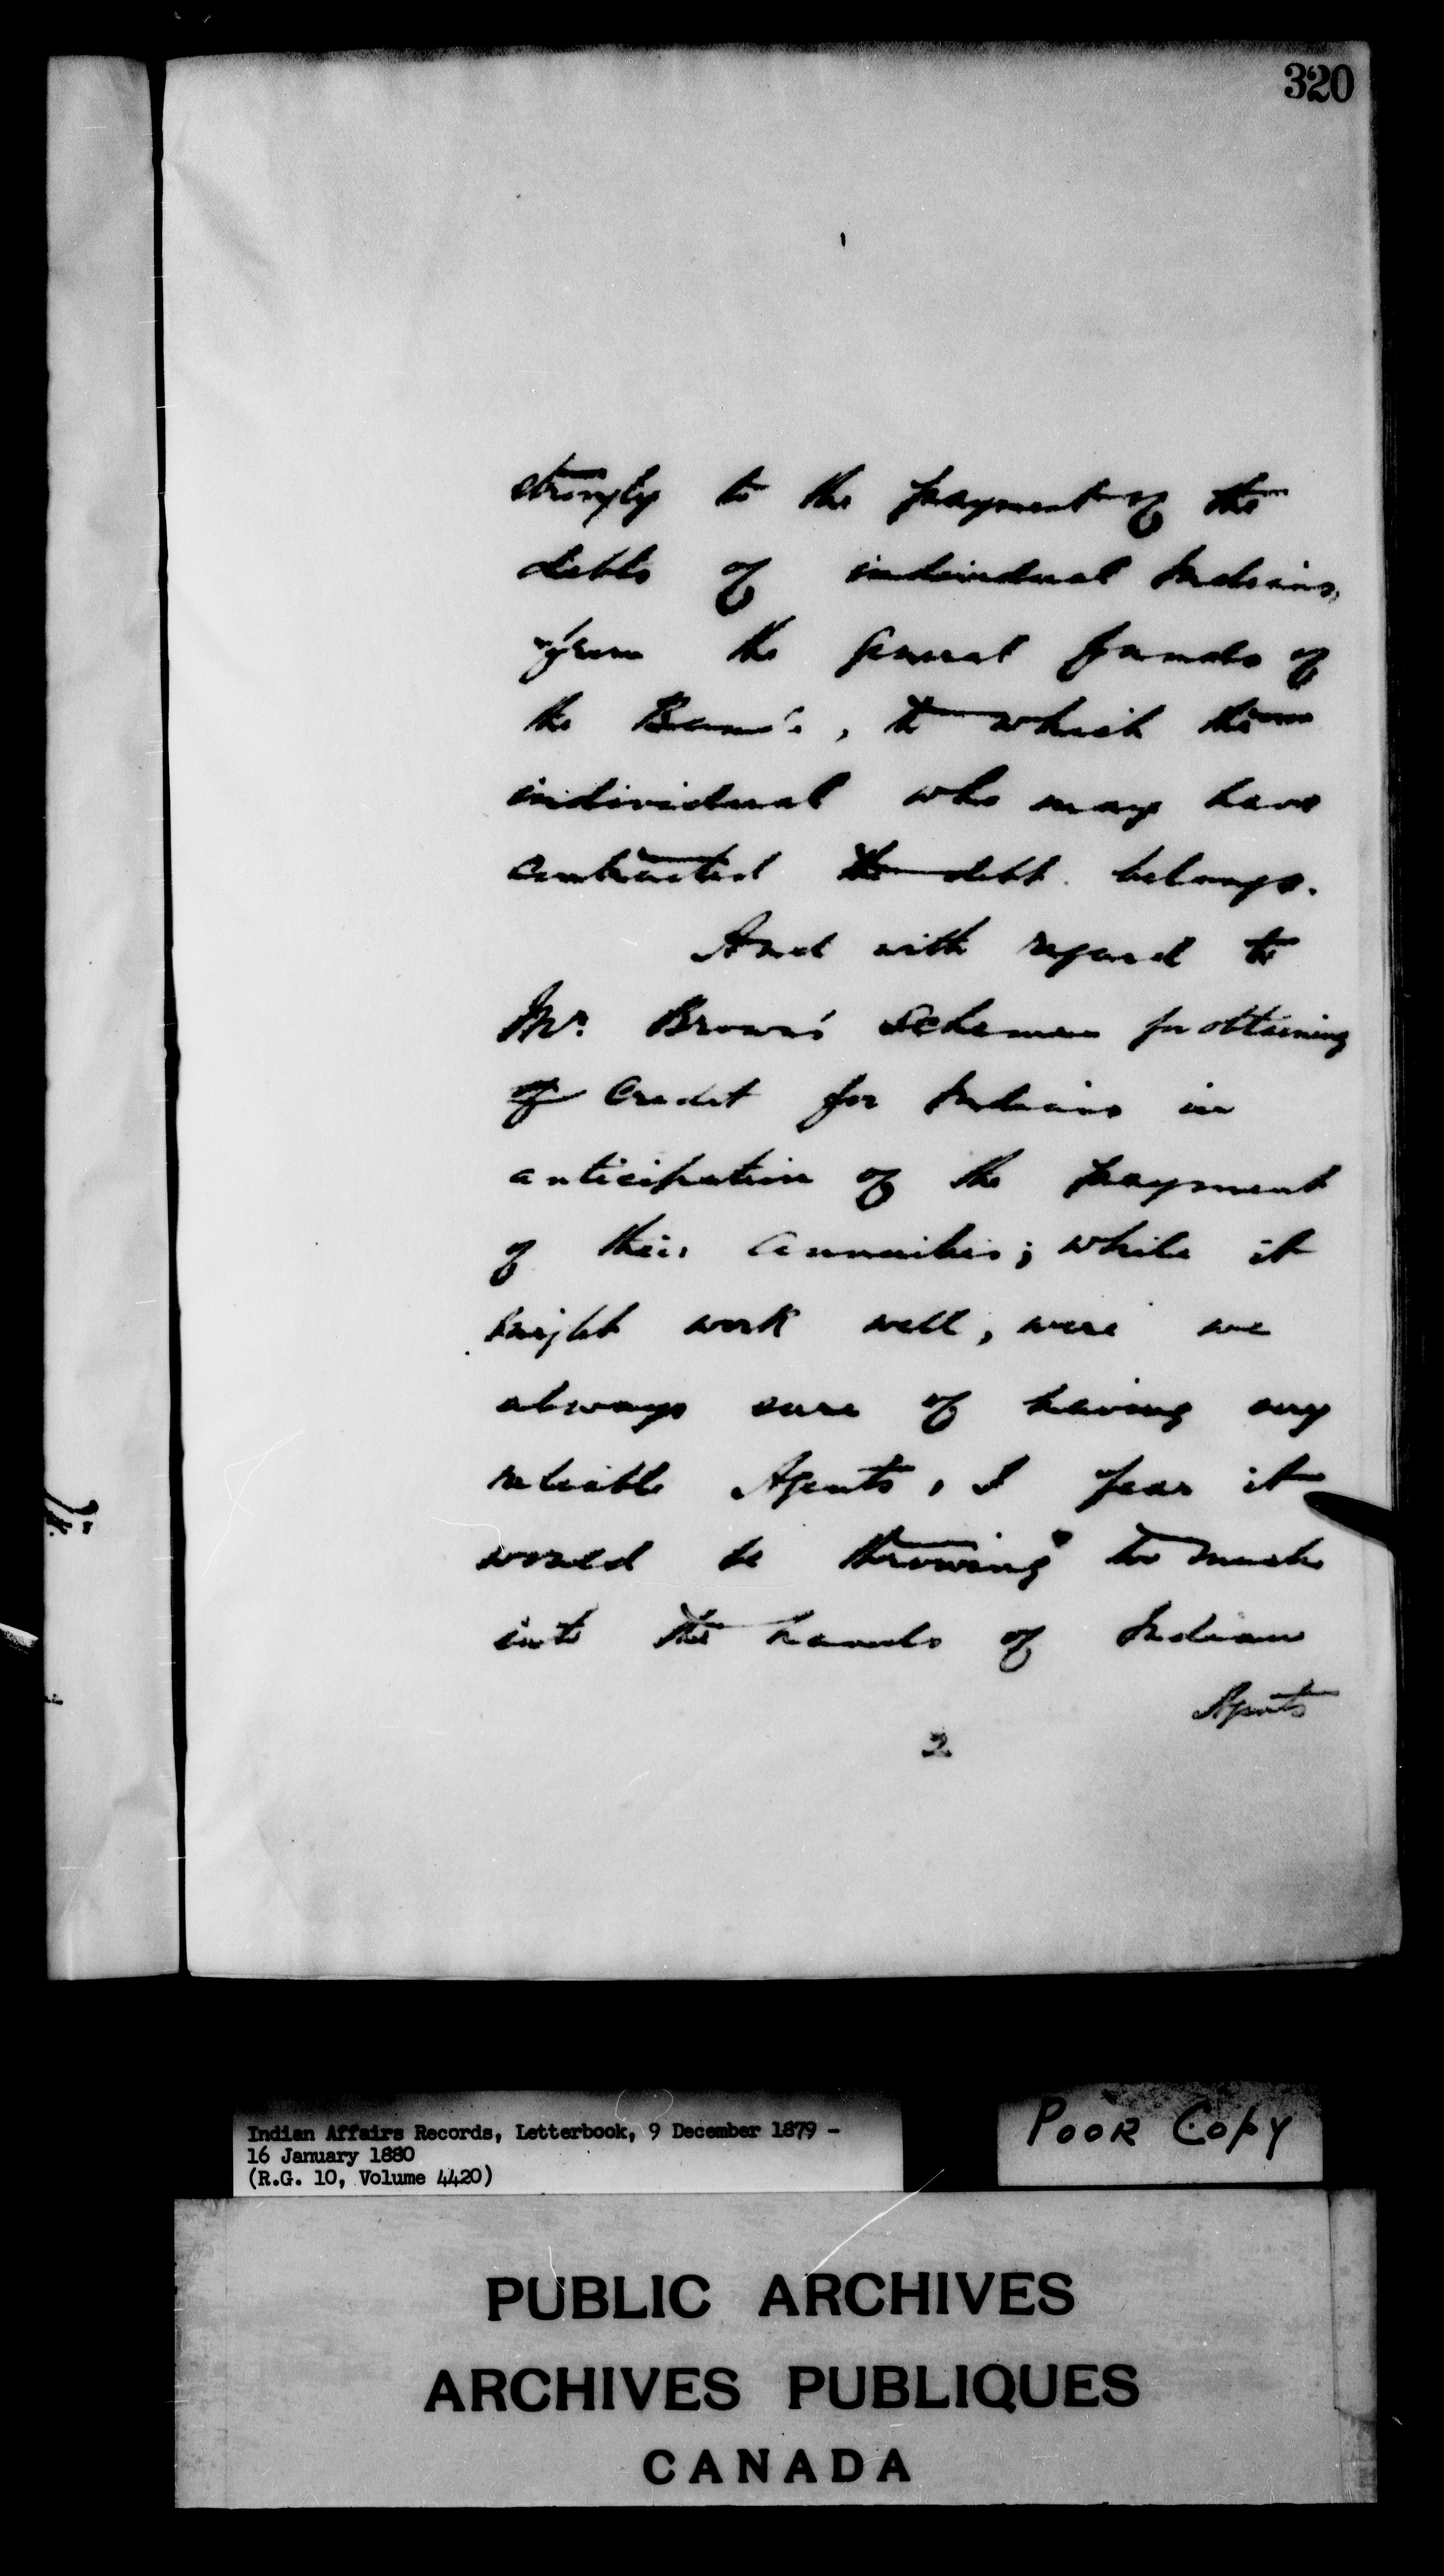 320
strongly to the payment of the
debts of individual Indians,
from the general funds of
the Band, to which the
individual who may have
contracted the debt belongs.
And with regard to
Mr. Brown's Scheme for obtaining
of Credit for Indians in
anticipation of the payment
of their Annuities; while it
might work well, were we
always sure of having very
reliable Agents, I fear it
would be throwing too much
into the hands of Indian
Agents
2
Indian Affairs Records, Letterbook, 9 December 1879 -
16 January 1880
(R.G. 10, Volume 4420)
POOR COPY
PUBLIC ARCHIVES
ARCHIVES PUBLIQUES
CANADA